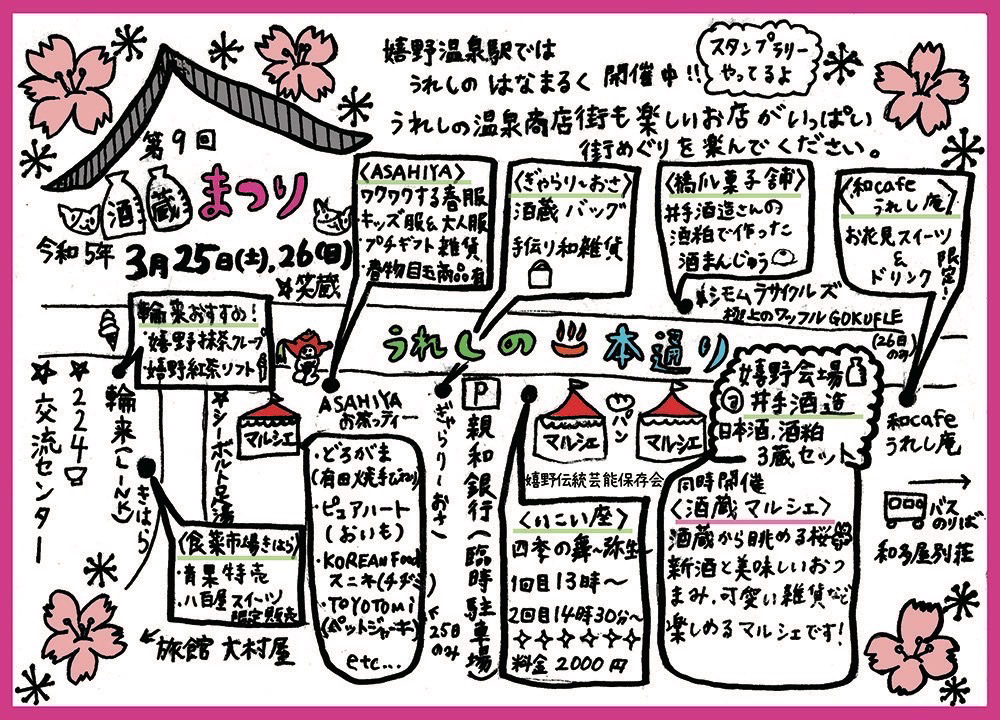 嬉野温泉駅では
うれしの はなまるく 開催中!!
スタンプラリー
やってるよ
うれしの温泉商店街も楽しいお店がいっぱい
街めぐりを楽んでください。
第9回
酒蔵まつり
令和5年
3月25日(土),26(日)
〈ASAHIYA〉
ワクワクする春服
・キッズ服&大人服
・プチギフト雑貨
・春物目玉商品有
〈ぎゃらり〜おさ〉
酒蔵バッグ
手作り和雑貨
〈橋爪菓子舗〉
井手酒造さんの
酒粕で作った
酒まんじゅう
〈和cafe
うれし庵〉
お花見スイーツ
&
ドリンク
限定!
笑蔵
シモムラサイクルズ
極上のワッフルGOKUFLE
(26日
のみ)
輪来おすすめ!
嬉野抹茶クレープ
嬉野紅茶ソフト
うれしの♨本通り
224
交流センター
輪来(LINK)
きはら
シーボルト足湯
マルシェ
ASAHIYA
の茶ッティー
ぎゃらりーおさ
P
親和銀行(臨時駐車場)
マルシェ
パン
マルシェ
嬉野伝統芸能保存会
嬉野会場
井手酒造
日本酒,酒粕
3蔵セット
和cafe
うれし庵
・どろがま
(有田焼手びねり)
・ピュアハート
(おいも)
・KOREAN Food
スニネ(チヂミ)
・TOYOTOMi
(ペットジャーキー)
25日
のみ
etc...
〈食菜市場きはら〉
・青果特売
・八百屋スイーツ
限定販売
旅館 大村屋
〈いこい座〉
四季の舞〜弥生〜
1回目13時〜
2回目14時30分〜
料金 2000円
同時開催
〈酒蔵マルシェ〉
酒蔵から眺める桜
新酒と美味しいおつ
まみ.可愛い雑貨など
楽しめるマルシェです!
バス
のりば
和多屋別荘